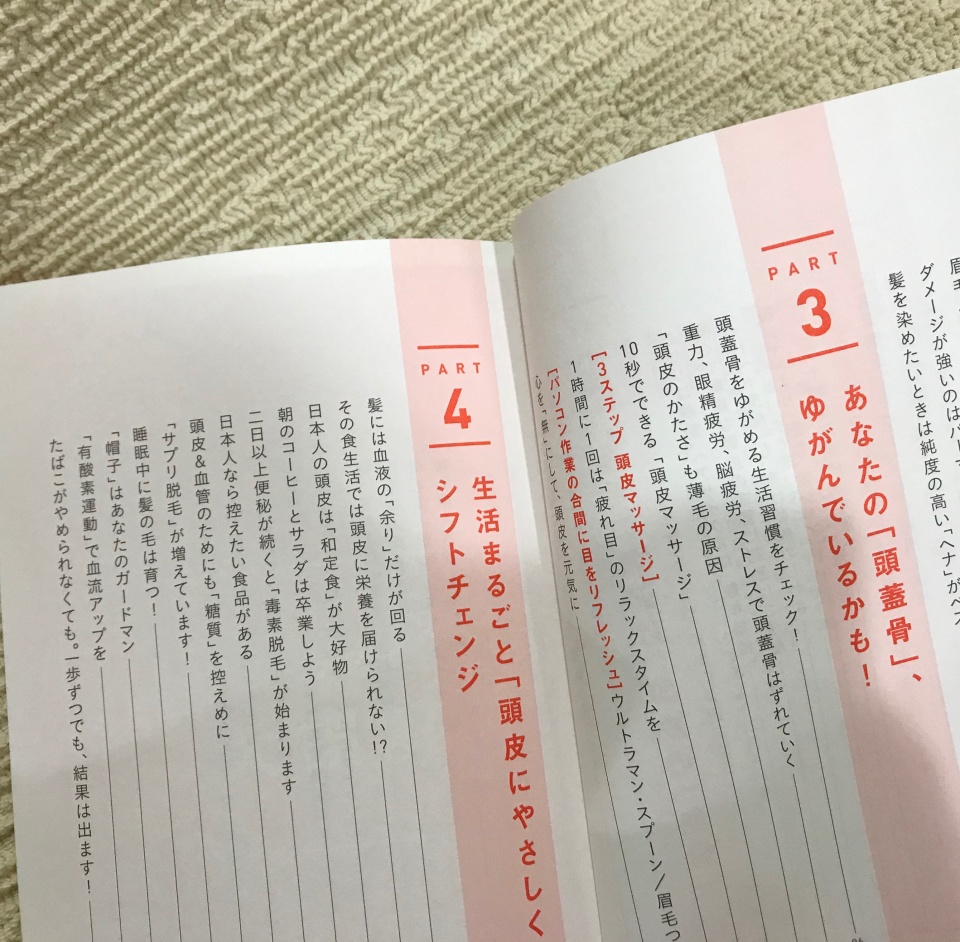 ダメージが強いのはパーマ
髪を染めたいときは純度の高い「ヘナ」がベス
PART
3
あなたの「頭蓋骨」、
ゆがんでいるかも！
頭蓋骨をゆがめる生活習慣をチェック！
重力、眼精疲労、脳疲労、ストレスで頭蓋骨はずれていく
「頭皮のかたさ」も薄毛の原因
10秒でできる「頭皮マッサージ」
［3ステップ 頭皮マッサージ］
1時間に1回は「疲れ目」のリラックスタイムを
［パソコン作業の合間に目をリフレッシュ］ウルトラマン・スプーン／眉毛つ
心を「無」にして、頭皮を元気に
PART
4
生活まるごと「頭皮にやさしく
シフトチェンジ
髪には血液の「余り」だけが回る
その食生活では頭皮に栄養を届けられない!?
日本人の頭皮は「和定食」が大好物
朝のコーヒーとサラダは卒業しよう
二日以上便秘が続くと「毒素脱毛」が始まります
日本人なら控えたい食品がある
頭皮＆血管のためにも「糖質」を控えめに
「サプリ脱毛」が増えています！
睡眠中に髪の毛は育つ！
「帽子」はあなたのガードマン
「有酸素運動」で血流アップを
たばこがやめられなくても。一歩ずつでも、結果は出ます！